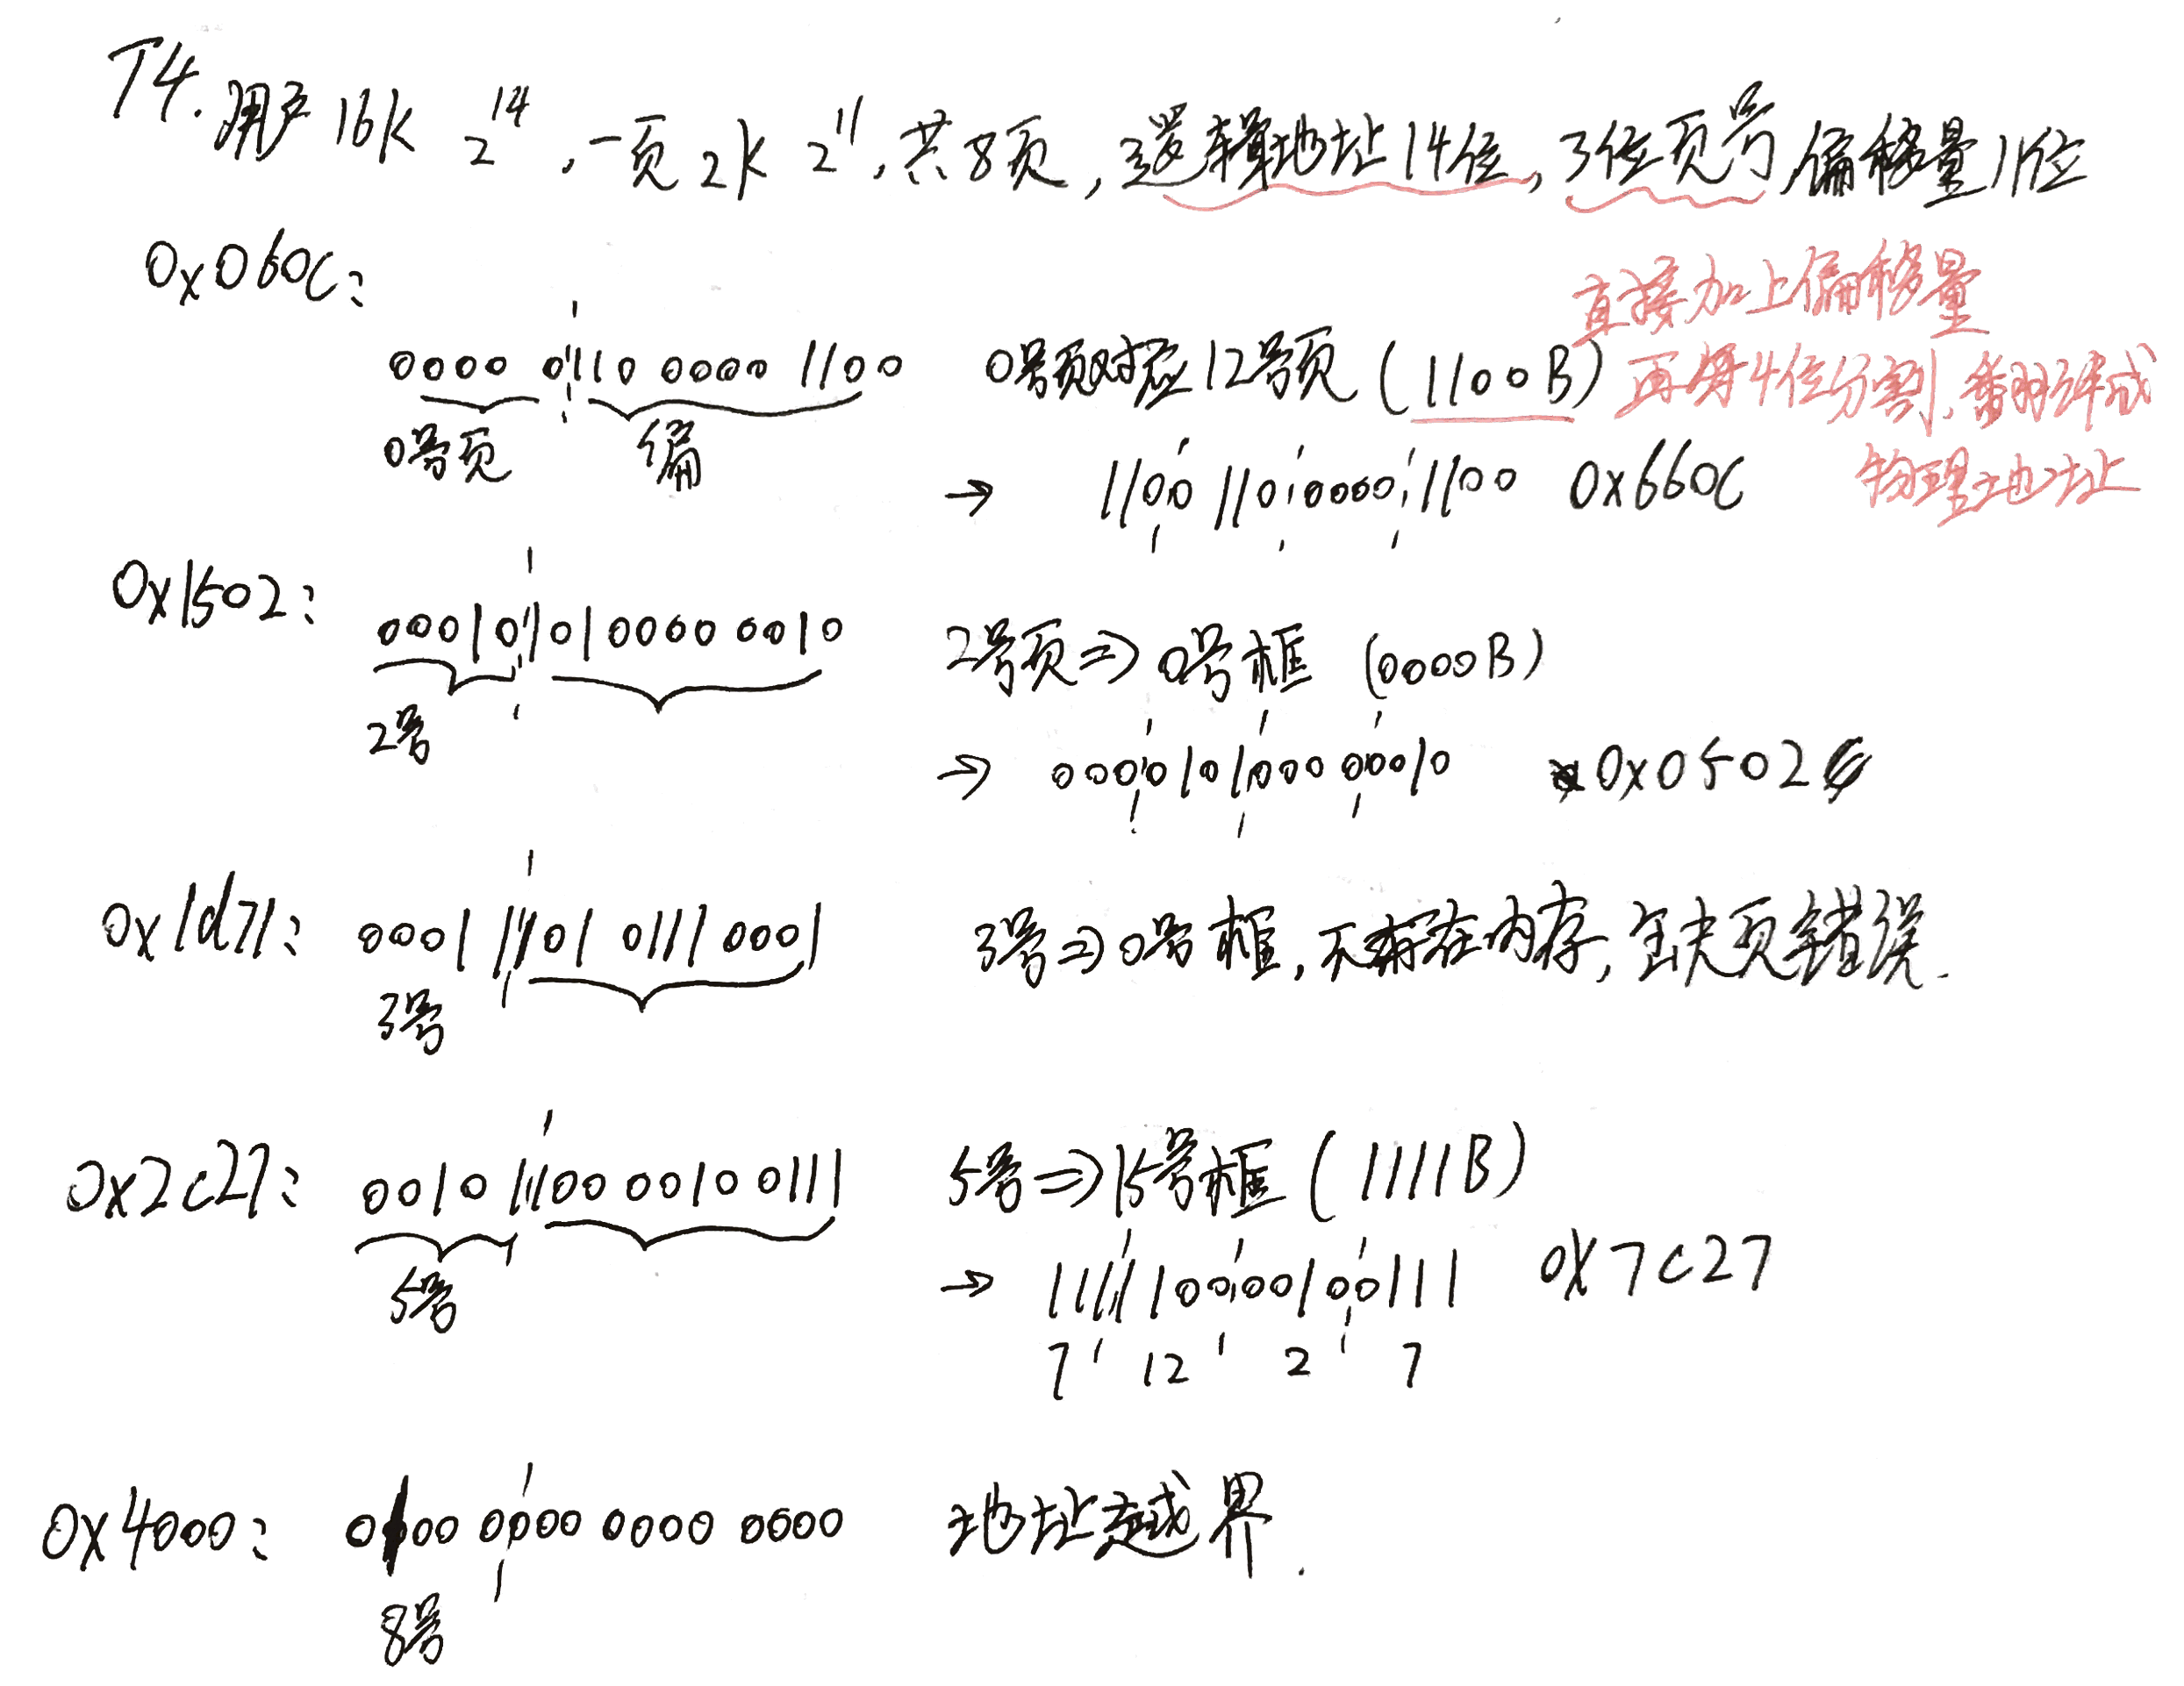 T4. 用户 16K 2^14, 一页 2K 2^11, 共8页, 逻辑地址14位, 3位页号, 偏移量11位
0x060C:
直接加上偏移量
0000 0110 0000 1100 0号页对应12号页 (1100B) 再每4位分割, 翻译成
0号页 偏
→ 110 0110 0000 1100 0x660C 物理地址
0x1502:
0001 0101 0000 0010 2号页⇒0号框 (0000B)
2号
→ 000 0101 0000 0010 0x0502
0x1d71: 0001 1101 0111 0001 3号⇒0号框, 不存在内存, 缺页错误.
3号
0x2c27: 0010 1100 0010 0111 5号⇒15号框 (1111B)
5号
→ 111 1100 0010 0111 0x7C27
7 12 2 7
0x4000: 0100 0000 0000 0000 地址越界.
8号